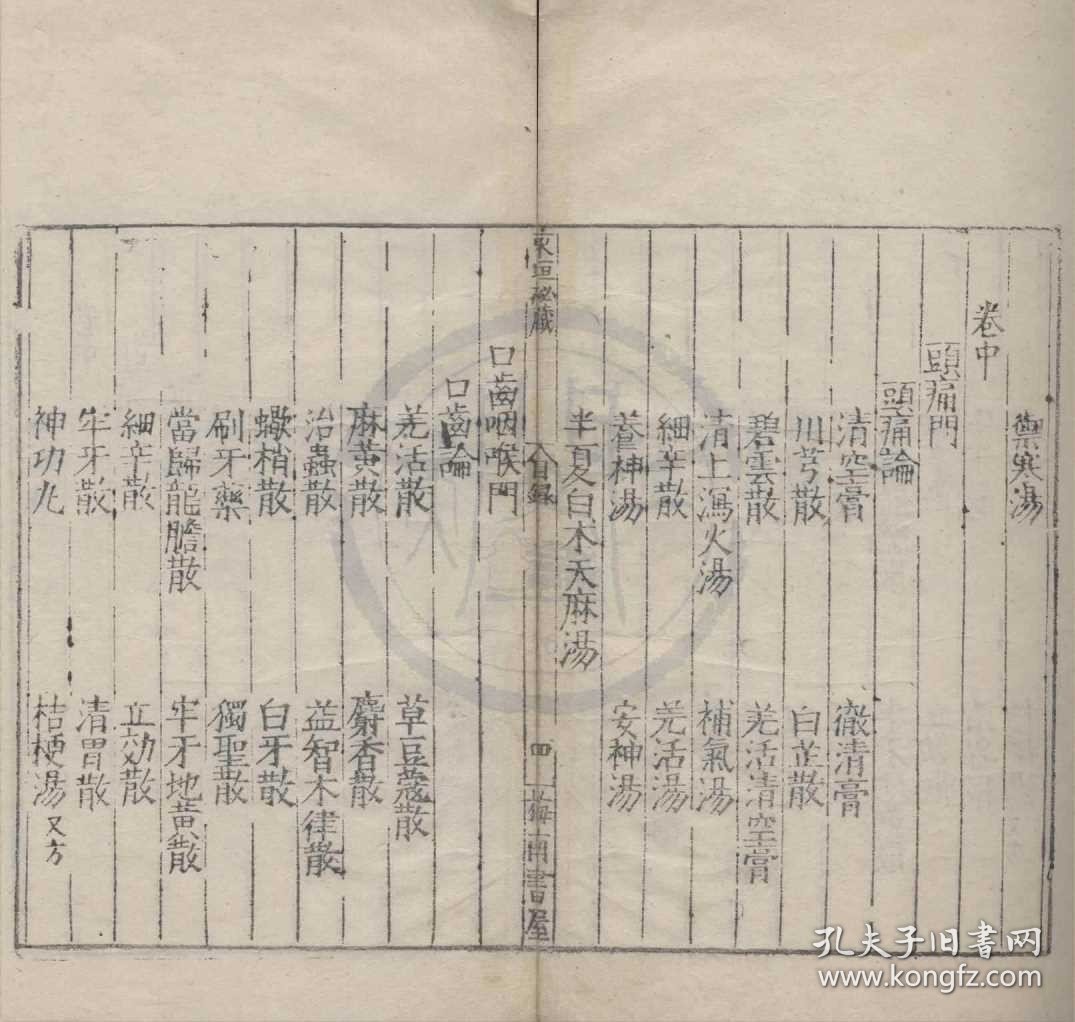 禦寒湯
卷中
頭痛門
頭痛論
清空膏 徹清膏
川芎散 白芷散
碧雲散 羌活清空膏
清上瀉火湯 補氣湯
細辛散 羌活湯
養神湯 安神湯
半夏白木天麻湯
東垣秘藏 目錄 四 梅南書屋
口齒咽喉門
口齒論
羌活散 草豆蔻散
麻黃散 麝香散
治蟲散 益智木律散
蠍梢散 白牙散
刷牙藥 獨聖散
當歸龍膽散 牢牙地黃散
細辛散 立効散
牢牙散 清胃散
神功丸 桔梗湯又方
孔夫子旧書网
www.kongfz.com